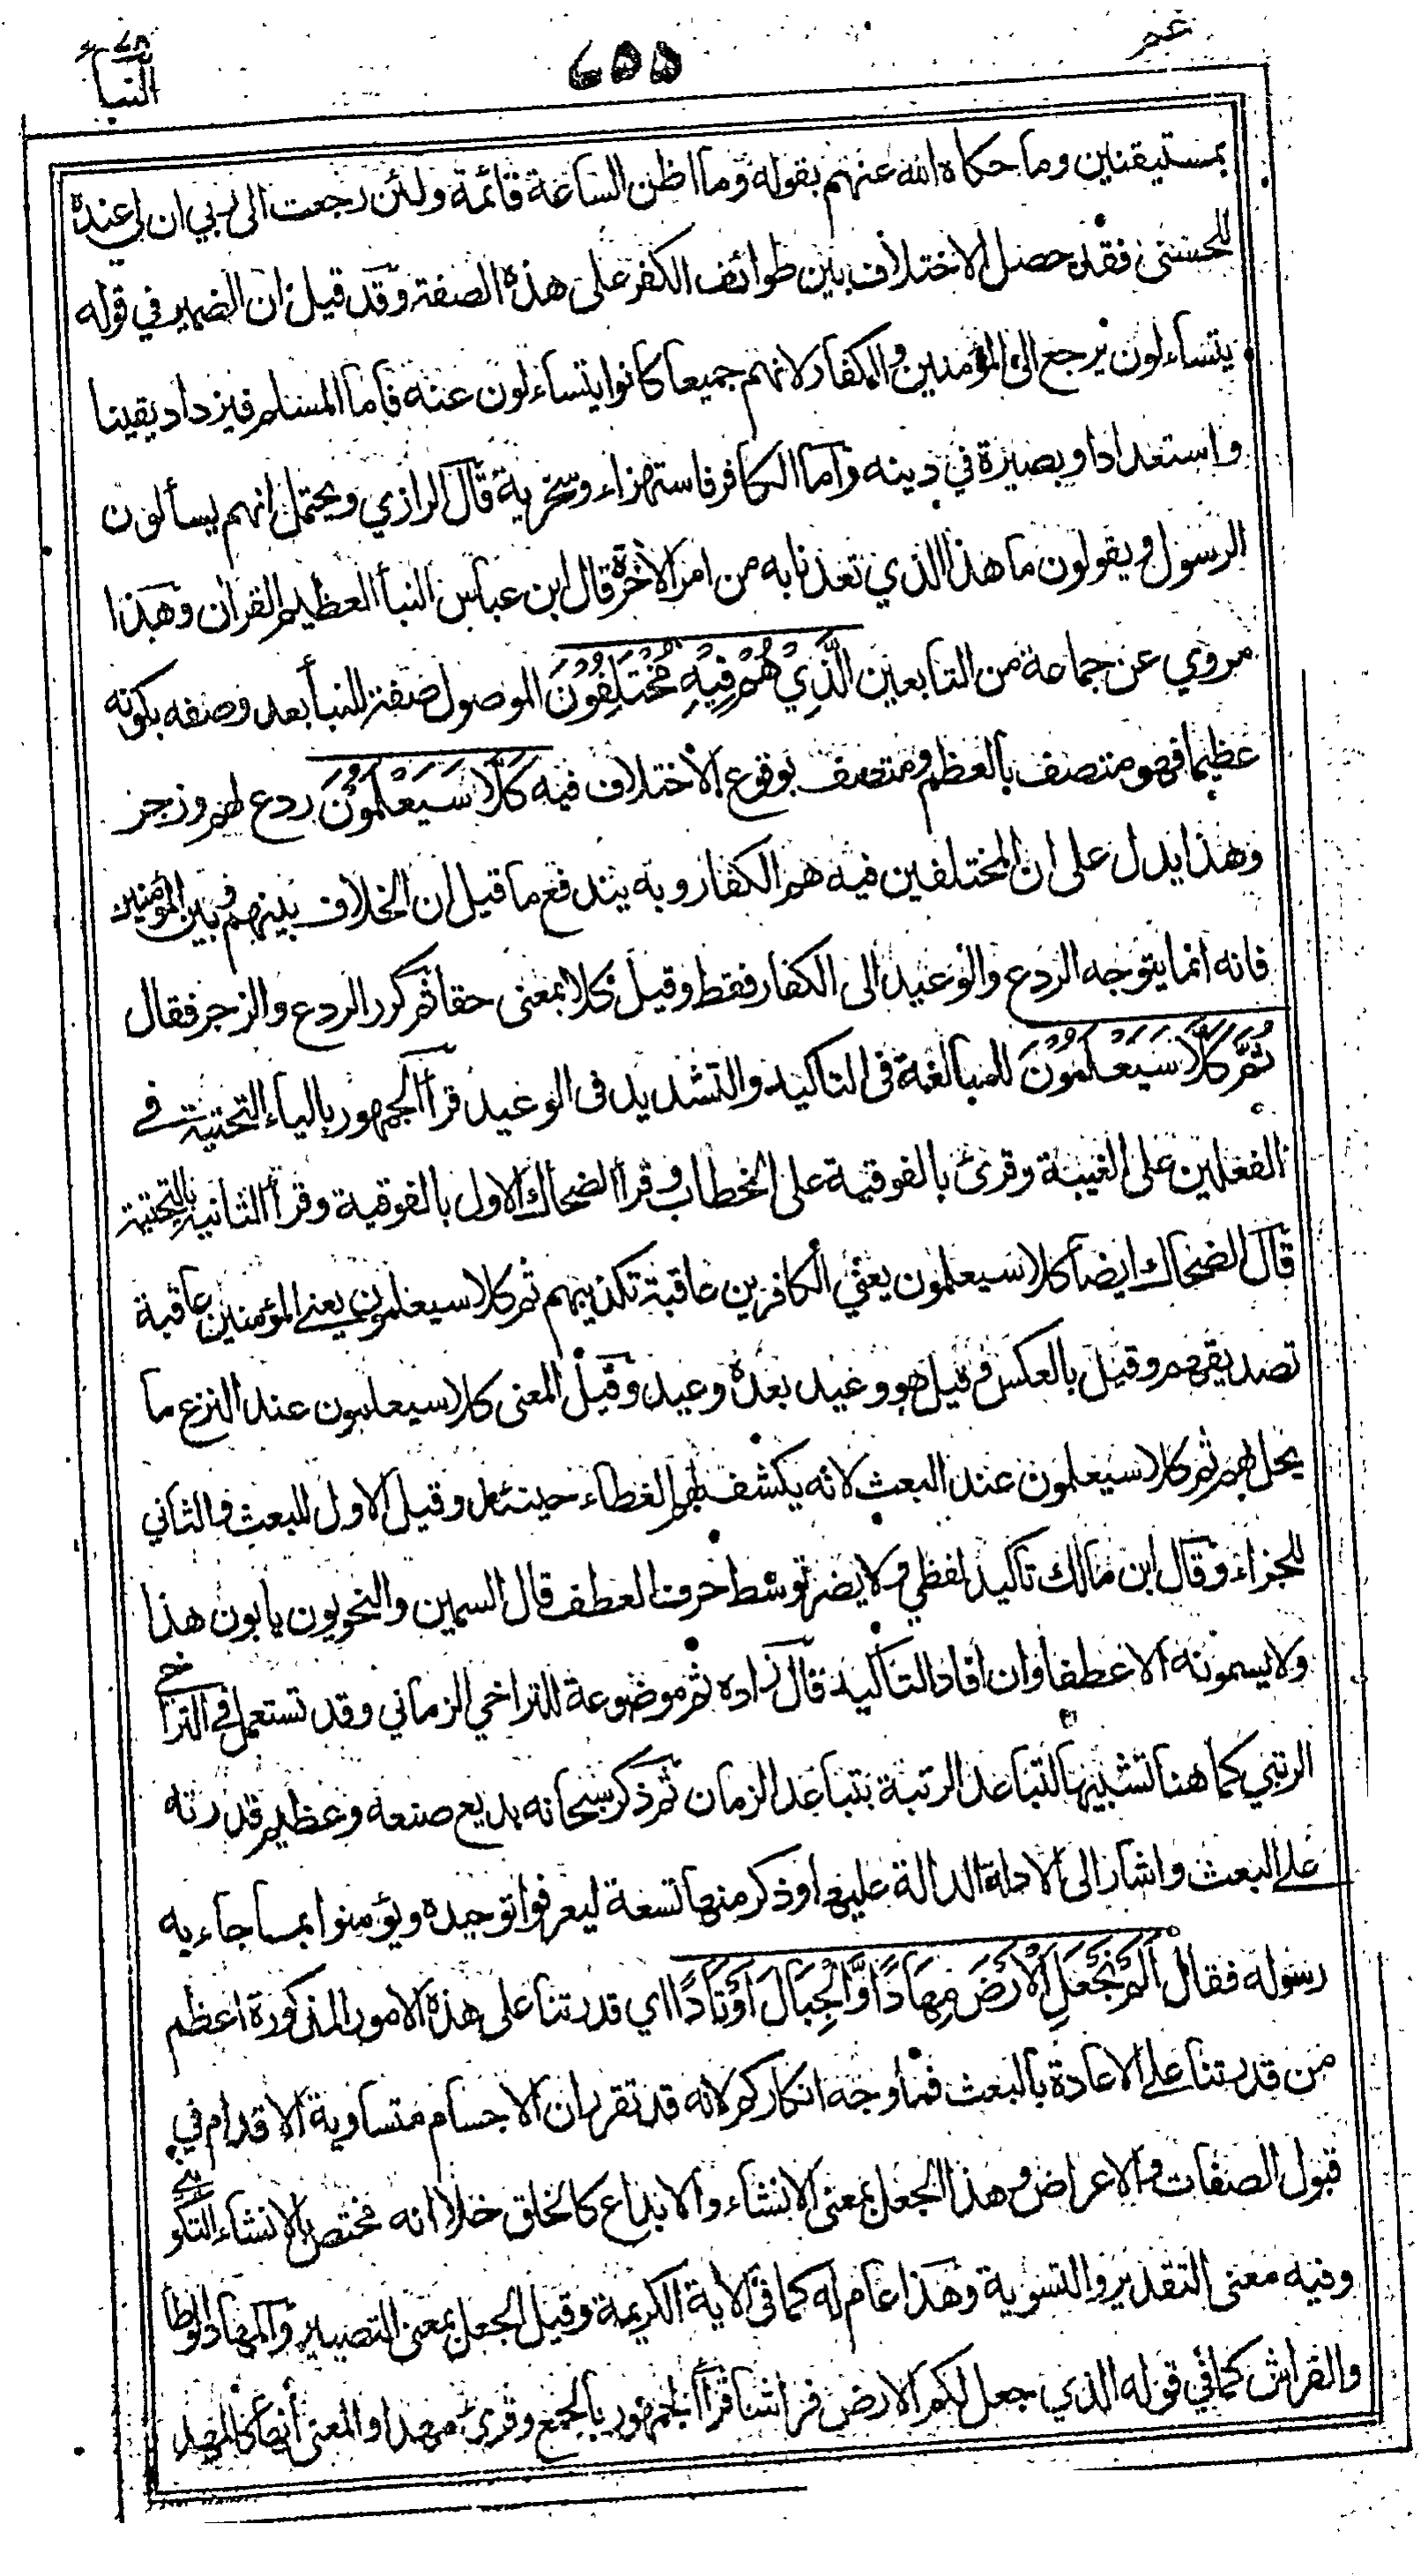 عم
٢٥٥
النبأ
بمستيقنين وما حكاه الله عنهم بقوله وما اظن الساعة قائمة ولئن رجعت الى ربي ان لي عنده
للحسنى فقد حصل الاختلاف بين طوائف الكفر على هذه الصفة وقد قيل ان الضمير في قوله
يتساءلون يرجع الى المؤمنين والكفار لانهم جميعا كانوا يتساءلون عنه فاما المسلم فيزداد يقينا
واستعدادا وبصيرة في دينه واما الكافر فاستهزاء وسخرية قال الرازي ويحتمل انهم يسألون
الرسول ويقولون ما هذا الذي تعدنا به من امر الاخرة قال ابن عباس النبأ العظيم القران وهذا
مروي عن جماعة من التابعين الَّذِيْ هُمْ فِيْهِ مُخْتَلِفُوْنَ الموصول صفة للنبأ بعد وصفه بكونه
عظيما فهو متصف بالعظم ومتصف بوقوع الاختلاف فيه كَلَّا سَيَعْلَمُوْنَ ردع لهم وزجر
وهذا يدل على ان المختلفين فيه هم الكفار وبه يندفع ما قيل ان الخلاف بينهم وبين المؤمنين
فانه انما يتوجه الردع والوعيد الى الكفار فقط وقيل كلا بمعنى حقا ثم كرر الردع والزجر فقال
ثُمَّ كَلَّا سَيَعْلَمُوْنَ للمبالغة في التاكيد والتشديد في الوعيد قرأ الجمهور بالياء التحتية في
الفعلين على الغيبة وقرئ بالفوقية على الخطاب وقرأ الضحاك الاول بالفوقية وقرأ الثانية بالتحتية
قال الضحاك ايضا كلا سيعلمون يعني الكافرين عاقبة تكذيبهم ثم كلا سيعلمون يعني المؤمنين عاقبة
تصديقهم وقيل بالعكس وقيل هو وعيد بعده وعيد وقيل المعنى كلا سيعلمون عند النزع ما
يحل بهم ثم كلا سيعلمون عند البعث لانه يكشف لهم الغطاء حينئذ وقيل الاول للبعث والثاني
للجزاء وقال ابن مالك تاكيد لفظي ولا يضر توسط حرف العطف قال السمين والنحويون يابون هذا
ولا يسمونه الا عطفا وان افاد التاكيد قال زاده ثم موضوعة للتراخي الزماني وقد تستعمل في التراخي
الرتبي كما هنا تشبيها لتباعد الرتبة بتباعد الزمان ثم ذكر سبحانه بديع صنعه وعظيم قدرته
على البعث واشار الى الادلة الدالة عليها وذكر منها تسعة ليعرفوا توحيده ويؤمنوا بما جاء به
رسوله فقال اَلَمْ نَجْعَلِ الْاَرْضَ مِهَادًا وَّالْجِبَالَ اَوْتَادًا اي قدرتنا على هذه الامور المذكورة اعظم
من قدرتنا على الاعادة بالبعث فما وجه انكاركم لانه قد تقرر ان الاجسام متساوية الاقدام في
قبول الصفات والاعراض وهذا الجعل بمعنى الانشاء والابداع كالخلق خلا انه مختص بالانشاء التكويني
وفيه معنى التقدير والتسوية وهذا عام له كما في الاية الكريمة وقيل الجعل بمعنى التصيير والمهاد الوطا
والفراش كما في قوله الذي جعل لكم الارض فراشا قرأ الجمهور بالجمع وقرئ مهدا والمعنى أنها كالمهد